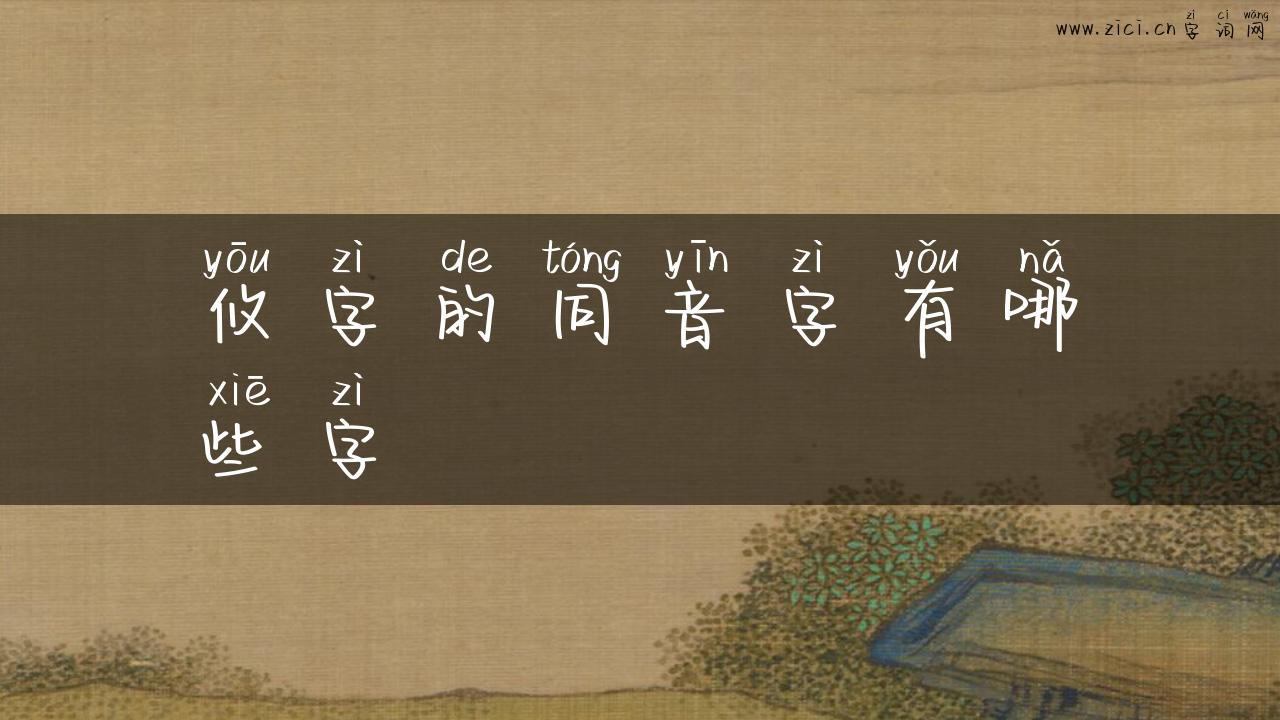 zì cí wǎng
www.zici.cn 字词网
yōu zì de tóng yīn zì yǒu nǎ
攸字的同音字有哪
xiē zì
些字